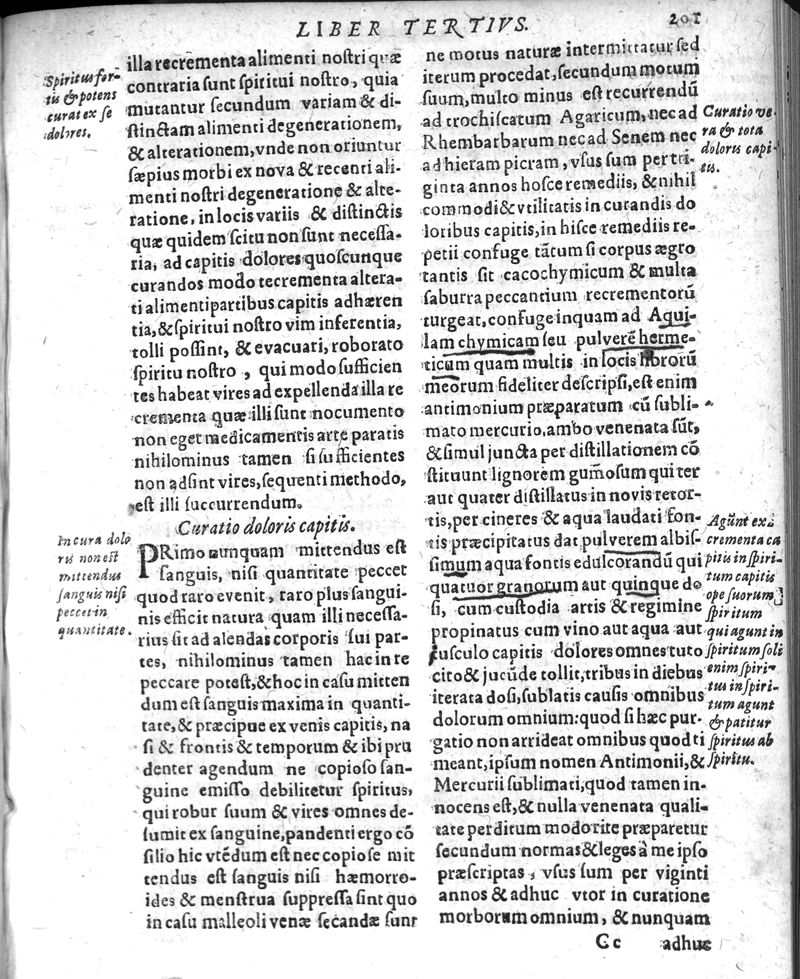 LIBER TERTIVS.
201
Spiritus for-
tis & potens
curat ex se
dolores.
illa recrementa alimenti nostri quæ
contraria sunt spiritui nostro, quia
mutantur secundum variam & di-
stinctam alimenti degenerationem,
& alterationem, vnde non oriuntur
sæpius morbi ex nova & recenti ali-
menti nostri degeneratione & alte-
ratione, in locis variis & distinctis
quæ quidem scitu non sunt necessa-
ria, ad capitis dolores quoscunque
curandos modo tecrementa altera-
ti alimenti partibus capitis adhæren
tia, & spiritui nostro vim inferentia,
tolli possint, & evacuari, roborato
spiritu nostro, qui modo sufficien
tes habeat vires ad expellenda illa re
crementa quæ illi sunt nocumento
non eget medicamentis arte paratis
nihilominus tamen si sufficientes
non adsint vires, sequenti methodo,
est illi succurrendum.
Curatio doloris capitis.
In cura dolo
ris non est
mittendus
sanguis nisi
peccet in
quantitate.
PRimo nunquam mittendus est
sanguis, nisi quantitate peccet
quod raro evenit, raro plus sangui-
nis efficit natura quam illi necessa-
rius sit ad alendas corporis sui par-
tes, nihilominus tamen hac in re
peccare potest, & hoc in casu mitten
dum est sanguis maxima in quanti-
tate, & præcipue ex venis capitis, na
si & frontis & temporum & ibi pru
denter agendum ne copioso san-
guine emisso debilitetur spiritus,
qui robur suum & vires omnes de-
sumit ex sanguine, pandenti ergo cō
silio hic vtēdum est nec copiose mit
tendus est sanguis nisi hæmorro-
ides & menstrua suppressa sint quo
in casu malleoli venæ secandæ sunt
ne motus naturæ intermittatur sed
iterum procedat, secundum motum
suum, multo minus est recurrendū
ad trochiscatum Agaricum, nec ad
Rhembarbarum nec ad Senem nec
ad hieram picram, vsus sum per tri-
ginta annos hosce remediis, & nihil
commodi & vtilitatis in curandis do
loribus capitis, in hisce remediis re-
petii confuge tātum si corpus ægro
tantis sit cacochymicum & multa
saburra peccantium recrementorū
turgeat, confuge inquam ad Aqui-
lam chymicam seu pulverē herme-
ticum quam multis in locis librorū
meorum fideliter descripsi, est enim
antimonium præparatum cū subli-
mato mercurio, ambo venenata sūt,
& simul juncta per distillationem cō
stituunt lignorem gum̄osum qui ter
aut quater distillatus in novis retor-
tis, per cineres & aqua laudati fon-
tis præcipitatus dat pulverem albis-
simum aqua fontis edulcorandū qui
quatuor granorum aut quinque do
si, cum custodia artis & regimine
propinatus cum vino aut aqua aut
jusculo capitis dolores omnes tuto
cito & jucūde tollit, tribus in diebus
iterata dosi, sublatis causis omnibus
dolorum omnium: quod si hæc pur-
gatio non arrideat omnibus quod ti
meant, ipsum nomen Antimonii, &
Mercurii sublimati, quod tamen in-
nocens est, & nulla venenata quali-
tate perditum modo rite præparetur
secundum normas & leges à me ipso
præscriptas, vsus sum per viginti
annos & adhuc vtor in curatione
morborum omnium, & nunquam
Curatio ve-
ra & tota
doloris capi-
tis.
Agūnt ex
crementa ca
pitis in spiri-
tum capitis
ope suorum
spirituum
qui agunt in
spiritum soli
enim spiri-
tus in spiri-
tum agunt
& patitur
spiritus ab
spiritu.
Cc
adhuc